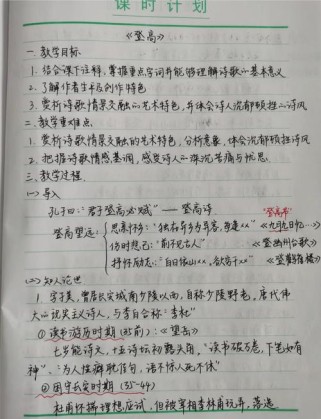 课时计划
《登高》
一、教学目标
1. 结合课下注释，掌握重点字词并能够理解诗歌的基本意义
2. 了解作者生平及创作特色
3. 赏析诗歌情景交融的艺术特色，并体会诗人沉郁顿挫的诗风
二、教学重难点
1. 赏析诗歌情景交融的艺术特色，分析意象，体会沉郁顿挫诗风
2. 把握诗歌情感基调，感受诗人深沉苦痛与忧思
三、教学过程
(一) 导入
孔子曰："君子登高必赋" —— 登高诗 "登高节"
登高望远： 思亲怀乡："独在异乡为异客，每逢xx" 《九月九日忆…》
伤时想己："前不见古人" 《登幽州台歌》
抒怀励志："白日依山xx，欲穷千xx" 《登鹳雀楼》
(二) 知人论世
1. 字子美，曾居长安城南少陵以西，自称少陵野老，唐代伟
大的现实主义诗人，与李白合称"李杜"
① 读书游历时期 (35前)：《望岳》
七岁能诗文，十五诗坛初露头角，"读书破万卷，下笔如有
神"，"为人性僻耽佳句，语不惊人死不休"
② 困守长安时期 (35-44)
杜甫怀揣理想应试，但被宰相李林甫玩弄，落选